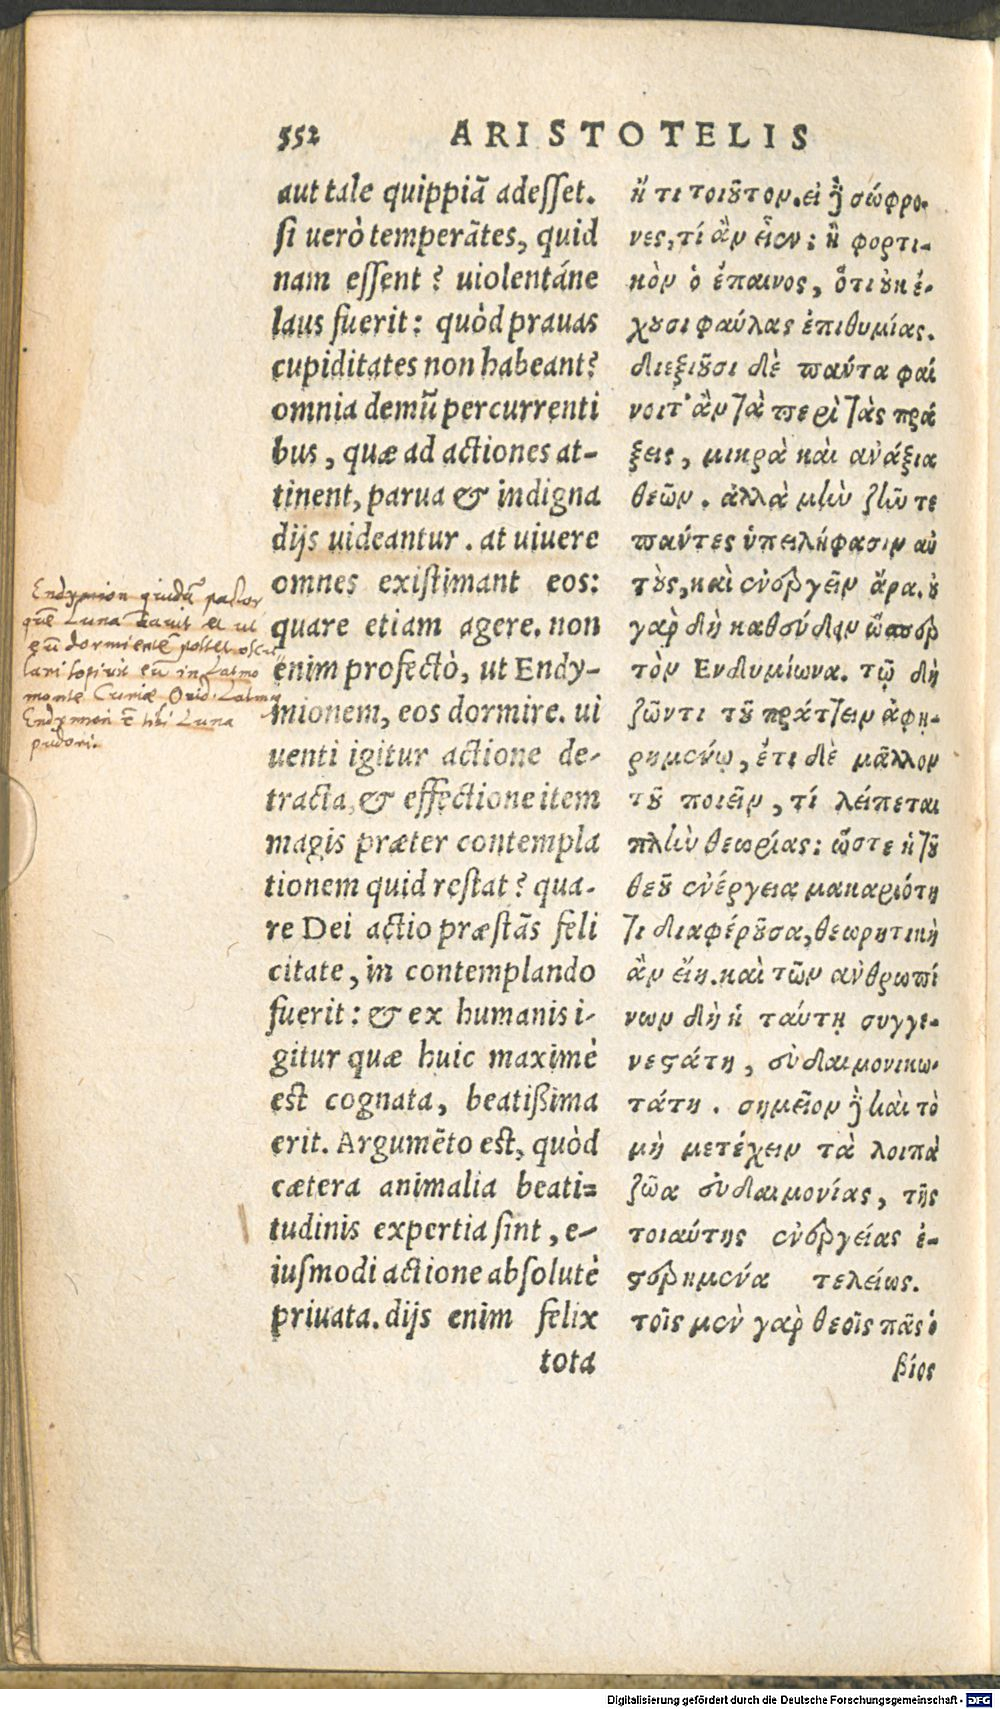 552 ARISTOTELIS
aut tale quippiã adesset.
si uerò temperãtes, quid
nam essent? uiolentáne
laus fuerit: quòd prauas
cupiditates non habeant?
omnia demũ percurrenti
bus, quæ ad actiones at-
tinent, parua & indigna
dijs uideantur. at uiuere
omnes existimant eos:
quare etiam agere. non
enim profectò, ut Endy-
mionem, eos dormire. ui
uenti igitur actione de-
tracta, & effectione item
magis præter contempla
tionem quid restat? qua-
re Dei actio præstãs feli
citate, in contemplando
fuerit: & ex humanis i-
gitur quæ huic maximè
est cognata, beatißima
erit. Argumẽto est, quòd
cætera animalia beati-
tudinis expertia sint, e-
iusmodi actione absolutè
priuata. dijs enim felix
tota
ἤ τι τοιοῦτον. εἰ δὲ σώφρο-
νες, τί ἂν εἶεν; ἢ φορτι-
κὸν ὁ ἔπαινος, ὅτι οὐκ ἔ-
χουσι φαύλας ἐπιθυμίας.
διεξιοῦσι δὲ πάντα φαί
νοιτ' ἂν τὰ περὶ τὰς πρά
ξεις, μικρὰ καὶ ἀνάξια
θεῶν. ἀλλὰ μὴν ζῆν τε
πάντες ὑπειλήφασιν αὐ
τοὺς, καὶ ἐνεργεῖν ἄρα. οὐ
γὰρ δὴ καθεύδειν ὥσπερ
τὸν Ενδυμίωνα. τῷ δὴ
ζῶντι τοῦ πράττειν ἀφῃ-
ρημένῳ, ἔτι δὲ μᾶλλον
τοῦ ποιεῖν, τί λείπεται
πλὴν θεωρίας; ὥστε ἡ τοῦ
θεοῦ ἐνέργεια μακαριότη
τι διαφέρουσα, θεωρητικὴ
ἂν εἴη. καὶ τῶν ἀνθρωπί
νων δὴ ἡ ταύτῃ συγγε-
νεστάτη, εὐδαιμονικω-
τάτη. σημεῖον δὲ καὶ τὸ
μὴ μετέχειν τὰ λοιπὰ
ζῶα εὐδαιμονίας, τῆς
τοιαύτης ἐνεργείας ἐ-
στερημένα τελείως.
τοῖς μὲν γὰρ θεοῖς πᾶς ὁ
βίος
Endymion quidã pastor
quẽ Luna
eũ dormientẽ posset oscu
lari sopivit eũ in Latmo
monte Cariæ Ovid. Latmius
Endymion ẽ tibi Luna
pudori.
Digitalisierung gefördert durch die Deutsche Forschungsgemeinschaft - DFG